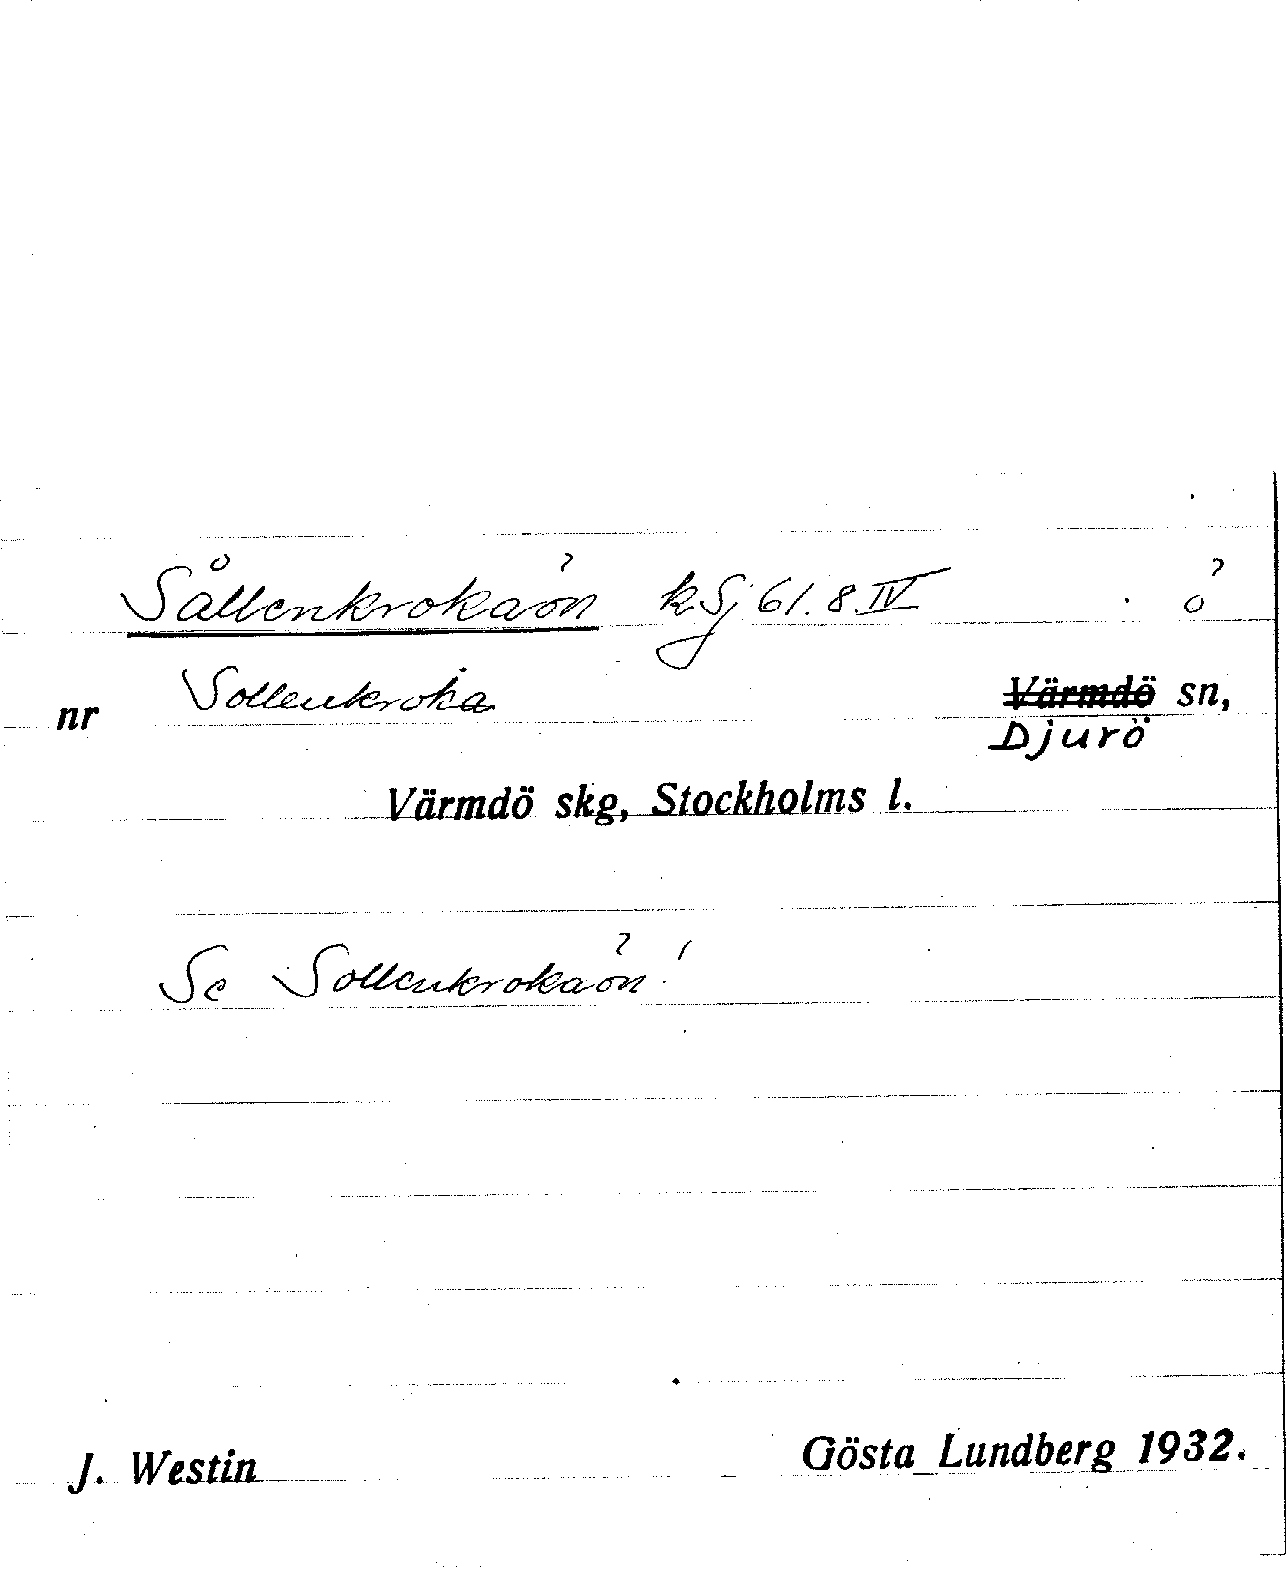 Sållenkrokaön? kSj 61.8.IV ?
o
nr Sollenkroka Värmdö sn,
Djurö
Värmdö skg, Stockholms l.
Se Sollenkrokaön?!
J. Westin Gösta Lundberg 1932.